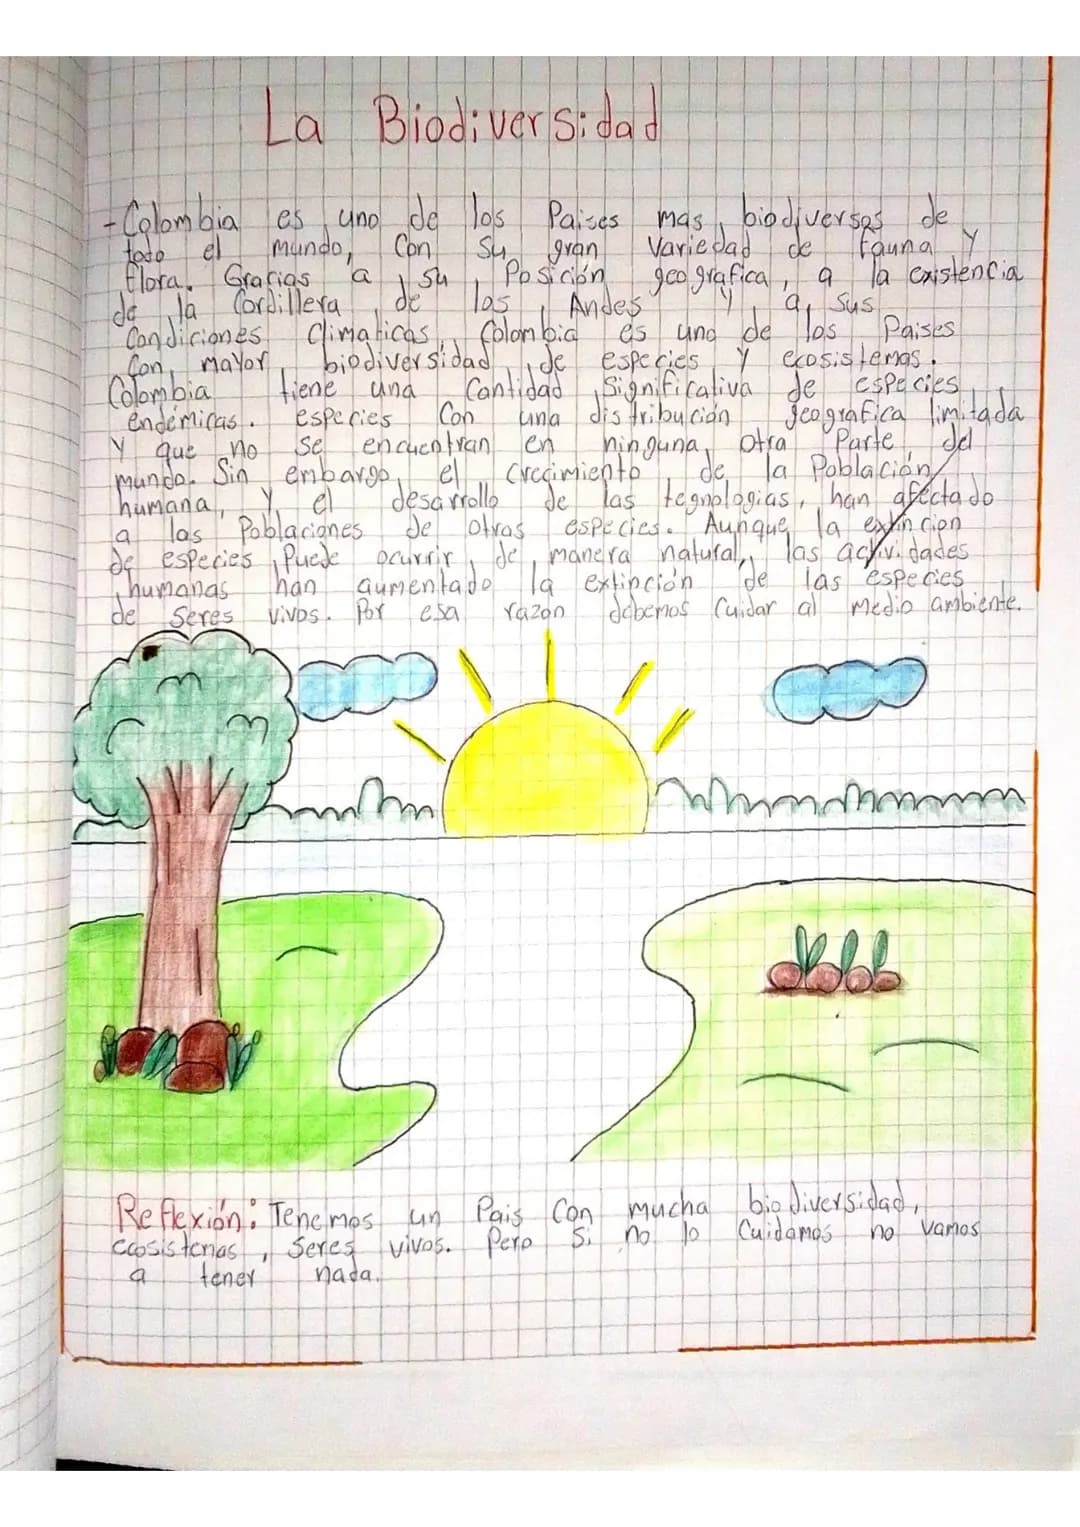 La Biodiversidad
- Colombia es uno de los Paises mas biodiversos de
todo el mundo, Con su gran Variedad de fauna y
flora. Gracias a su Posición geografica, a la existencia
de la Cordillera de los Andes y a sus
Condiciones Climaticas, Colombia es uno de los Paises
Con mayor biodiversidad de especies y ecosistemas.
Colombia tiene una Cantidad Significativa de especies
endémicas. especies Con una distribución geografica limitada
Y que no se encuentran en ninguna otra Parte del
mundo. Sin embargo, el crecimiento de la Población
humana, y el desarrollo de las tegnologias, han afectado
a las Poblaciones de otras especies. Aunque la extincion
de especies Puede ocurrir de manera natural, las actividades
humanas han aumentado la extinción de las especies
de seres vivos. Por esa razon debemos Cuidar al medio ambiente.
Reflexión: Tenemos un Pais Con mucha biodiversidad,
ecosistemas, seres vivos. Pero si no lo Cuidamos no vamos
a tener nada.